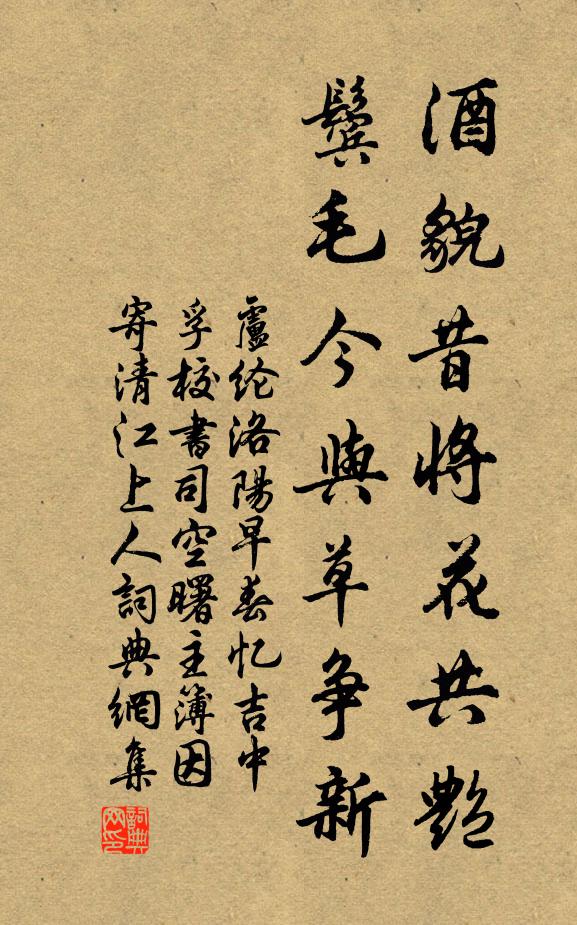 酒貌昔将花共艷
鬢毛今與草争新
盧纶洛陽早春忆吉中
孚校書司空曙主簿因
寄清江上人詞典網集
詞典网印